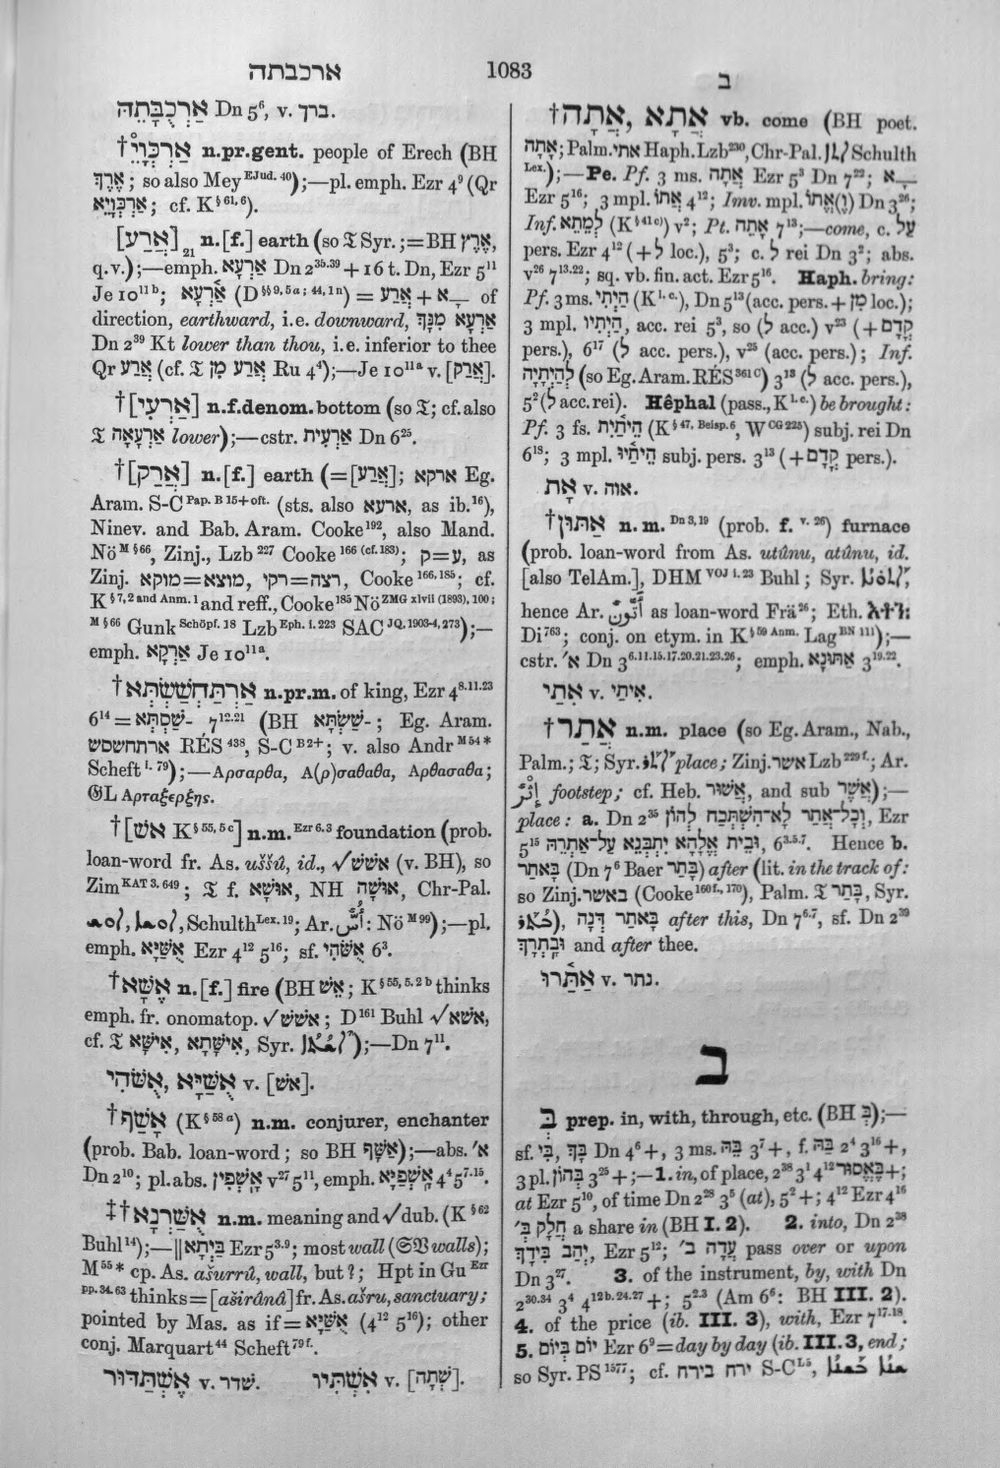 ארכבתה
1083
ב
אַרְכֻבָּתֵהּ Dn 5⁶, v. ברך.
†אַרְכְּוָי n.pr.gent. people of Erech (BH
אֶרֶךְ; so also Mey EJud. 40);—pl. emph. Ezr 4⁹ (Qr
אַרְכְּוָיֵא; cf. K § 61, 6).
[אֲרַע]₂₁ n.[f.] earth (so 𝔗 Syr.; = BH אֶרֶץ,
q.v.);—emph. אַרְעָא Dn 2³⁵·³⁹ + 16 t. Dn, Ezr 5¹¹
Je 10¹¹ᵇ; אַרְעָא (D §§ 9, 5a; 44, 1n) = אֲרַע + ־ָא of
direction, earthward, i.e. downward, אַרְעָא מִנָּךְ
Dn 2³⁹ Kt lower than thou, i.e. inferior to thee
Qr אֲרַע (cf. 𝔗 אֲרַע מִן Ru 4⁴);—Je 10¹¹ᵃ v. [אֲרַק].
†[אַרְעִי] n.f.denom. bottom (so 𝔗; cf. also
𝔗 אַרְעָאָה lower);—cstr. אַרְעִית Dn 6²⁵.
†[אֲרַק] n.[f.] earth (=[אֲרַע]; ארקא Eg.
Aram. S-C Pap. B 15+oft. (sts. also ארעא, as ib.¹⁶),
Ninev. and Bab. Aram. Cooke¹⁹², also Mand.
Nö M § 66, Zinj., Lzb ²²⁷ Cooke ¹⁶⁶ (cf. ¹⁸³); ע=ק, as
Zinj. מוצא=מוקא, רצה=רקי, Cooke ¹⁶⁶, ¹⁸⁵; cf.
K § 7, 2 and Anm. 1 and reff., Cooke ¹⁸⁵ Nö ZMG xlvii (1893), 100;
M § 66 Gunk Schöpf. 18 Lzb Eph. i. 223 SAC JQ. 1903-4, 273);—
emph. אַרְקָא Je 10¹¹ᵃ.
†אַרְתַּחְשַׁשְׂתְּא n.pr.m. of king, Ezr 4⁸·¹¹·²³
6¹⁴ = ־שַׁסְתְּא 7¹²·²¹ (BH ־שַׁשְׂתָּא; Eg. Aram.
ארתחשסש RÉS ⁴³⁸, S-C B2+; v. also Andr M 54 *
Scheft i. 79);—Αρσαρθα, Α(ρ)σαθαθα, Αρθασαθα;
𝔊L Αρταξερξης.
†[אֹשׁ K § 55, 5 c] n.m. Ezr 6, 3 foundation (prob.
loan-word fr. As. uššû, id., √אשש (v. BH), so
Zim KAT 3. 649; 𝔗 f. אוּשָּׁא, NH אוּשָּׁה, Chr-Pal.
Schulth Lex. 19; Ar. أُسّ: Nö M 99);—pl.
emph. אֻשַּׁיָּא Ezr 4¹² 5¹⁶; sf. אֻשּׁוֹהִי 6³.
†אֶשָּׁא n.[f.] fire (BH אֵשׁ; K § 55, 5. 2 b thinks
emph. fr. onomatop. √אשש; D¹⁶¹ Buhl √אשא,
cf. 𝔗 אִישָּׁא, אִישָּׁתָא, Syr.);—Dn 7¹¹.
אֻשַּׁיָּא, אֻשּׁוֹהִי v. [אֹשׁ].
†אָשַׁף (K § 58 a) n.m. conjurer, enchanter
(prob. Bab. loan-word; so BH אַשָּׁף);—abs. א׳
Dn 2¹⁰; pl. abs. אָשְׁפִין v²⁷ 5¹¹, emph. אָשְׁפַיָּא 4⁴ 5⁷·¹⁵.
‡†אֻשַּׁרְנָא n.m. meaning and √ dub. (K § 62
Buhl¹⁴);—‖ בַּיְתָא Ezr 5³·⁹; most wall (𝔊𝔙 walls);
M⁵⁵* cp. As. ašurrû, wall, but ?; Hpt in Gu Ezr
pp. 34. 63 thinks=[aširânâ] fr. As. ašru, sanctuary;
pointed by Mas. as if = אֻשַּׁיָּא (4¹² 5¹⁶); other
conj. Marquart⁴⁴ Scheft ⁷⁹ᶠ.
אֶשְׁתַּדּוּר v. שדר. אִשְׁתִּיו v. [שְׁתָה].
†אֲתָה, אֲתָא vb. come (BH poet.
אָתָה; Palm. אתי Haph. Lzb²³⁰, Chr-Pal. Schulth
Lex.);—Pe. Pf. 3 ms. אֲתָה Ezr 5³ Dn 7²²; ־ָא
Ezr 5¹⁶; 3 mpl. אֲתוֹ 4¹²; Imv. mpl. אֱתוֹ(וֶ) Dn 3²⁶;
Inf. לְמֵתֵא (K § 41 c) v²; Pt. אָתֵה 7¹³;—come, c. עַל
pers. Ezr 4¹² (+ לְ loc.), 5³; c. לְ rei Dn 3²; abs.
v²⁶ 7¹³·²²; sq. vb. fin. act. Ezr 5¹⁶. Haph. bring:
Pf. 3 ms. הַיְתִי (K l. c.), Dn 5¹³ (acc. pers. + מִן loc.);
3 mpl. הַיְתִיו, acc. rei 5³, so (לְ acc.) v²³ (+ קֳדָם
pers.), 6¹⁷ (לְ acc. pers.), v²⁵ (acc. pers.); Inf.
לְהַיְתָיָה (so Eg. Aram. RÉS ³⁶¹ C) 3¹³ (לְ acc. pers.),
5² (לְ acc. rei). Hêphal (pass., K l. c.) be brought:
Pf. 3 fs. הֵיתָיִת (K § 47, Beisp. 6, W CG 225) subj. rei Dn
6¹⁸; 3 mpl. הֵיתָיוּ subj. pers. 3¹³ (+ קֳדָם pers.).
אָת v. אוה.
†אַתּוּן n. m. Dn 3, 19 (prob. f. v. 26) furnace
(prob. loan-word from As. utûnu, atûnu, id.
[also TelAm.], DHM VOJ i. 23 Buhl; Syr.
hence Ar. أَتُّون as loan-word Frä²⁶; Eth.
Di⁷⁶³; conj. on etym. in K § 59 Anm. Lag BN 111);—
cstr. א׳ Dn 3⁶·¹¹·¹⁵·¹⁷·²⁰·²¹·²³·²⁶; emph. אַתּוּנָא 3¹⁹·²².
אִתַי v. איתי.
†אֲתַר n.m. place (so Eg. Aram., Nab.,
Palm.; 𝔗; Syr. place; Zinj. אשר Lzb ²²⁹ᶠ·; Ar.
إِثْر footstep; cf. Heb. אֲשׁוּר, and sub אֲשֶׁר);—
place: a. Dn 2³⁵ וְכָל־אֲתַר לָא־הִשְׁתֲּכַח לְהוֹן, Ezr
5¹⁵ וּבֵית אֱלָהָא יִתְבְּנֵא עַל־אַתְרֵהּ, 6³·⁵·⁷. Hence b.
בָּאתַר (Dn 7⁶ Baer בָּתַר) after (lit. in the track of:
so Zinj. באשר (Cooke ¹⁶⁰ᶠ·, ¹⁷⁰), Palm. 𝔗 בָּתַר, Syr.
), בָּאתַר דְּנָה after this, Dn 7⁶·⁷, sf. Dn 2³⁹
וּבָתְרָךְ and after thee.
אַתַּרוּ v. נתר.
ב
בְּ prep. in, with, through, etc. (BH בְּ);—
sf. בִּי, בָּךְ Dn 4⁶+, 3 ms. בֵּהּ 3⁷+, f. בַּהּ 2⁴¹ 3¹⁶+,
3 pl. בְּהוֹן 3²⁵+;—1. in, of place, 2³⁸ 3¹ 4¹² בֶּאֱסוּר+;
at Ezr 5¹⁰, of time Dn 2²⁸ 3⁵ (at), 5²+; 4¹² Ezr 4¹⁶
חֲלָק בְּ׳ a share in (BH I. 2). 2. into, Dn 2³⁸
יְהַב בִּידָךְ, Ezr 5¹²; עֲדָה ב׳ pass over or upon
Dn 3²⁷. 3. of the instrument, by, with Dn
2³⁰·³⁴ 3⁴ 4¹²ᵇ·²⁴·²⁷+; 5²·³ (Am 6⁶: BH III. 2).
4. of the price (ib. III. 3), with, Ezr 7¹⁷·¹⁸.
5. יוֹם בְּיוֹם Ezr 6⁹=day by day (ib. III. 3, end;
so Syr. PS ¹⁵⁷⁷; cf. ירח בירח S-C L 5,